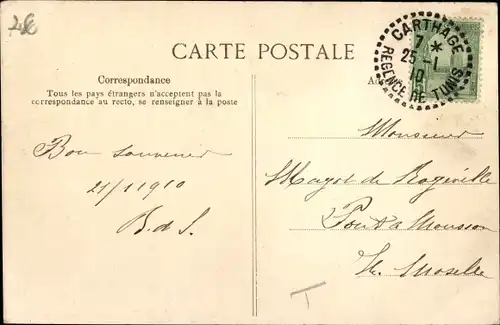 2€
CARTE POSTALE
CARTHAGE
7 *
25 -1
10
REGENCE DE TUNIS
Correspondance
Tous les pays étrangers n'acceptent pas la
correspondance au recto, se renseigner à la poste
Bon souvenir
21/1 1910
B. d S.
Monsieur
Magot de Rogéville
Pont à Mousson
M. Moselle
T